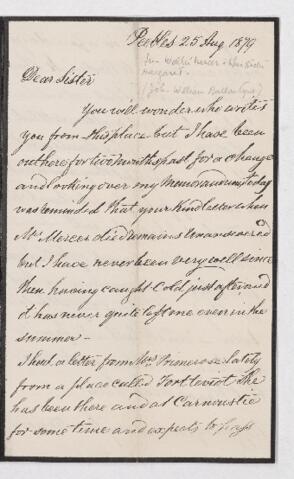 Peebles 25 Aug 1879
Dear Sister
You will wonder who writes
you from this place but I have been
out here for two months past for a change
and looking over my Memorandums today
was reminded that your kind letter when
Mr Mercer died remains unanswered
but I have never been very well since
then having caught cold just after and
it has never quite left me even in the
summer –
I had a letter from Mrs Primrose lately
from a place called Forteviot she
has been there and at Carnoustie
for some time and expects to pass